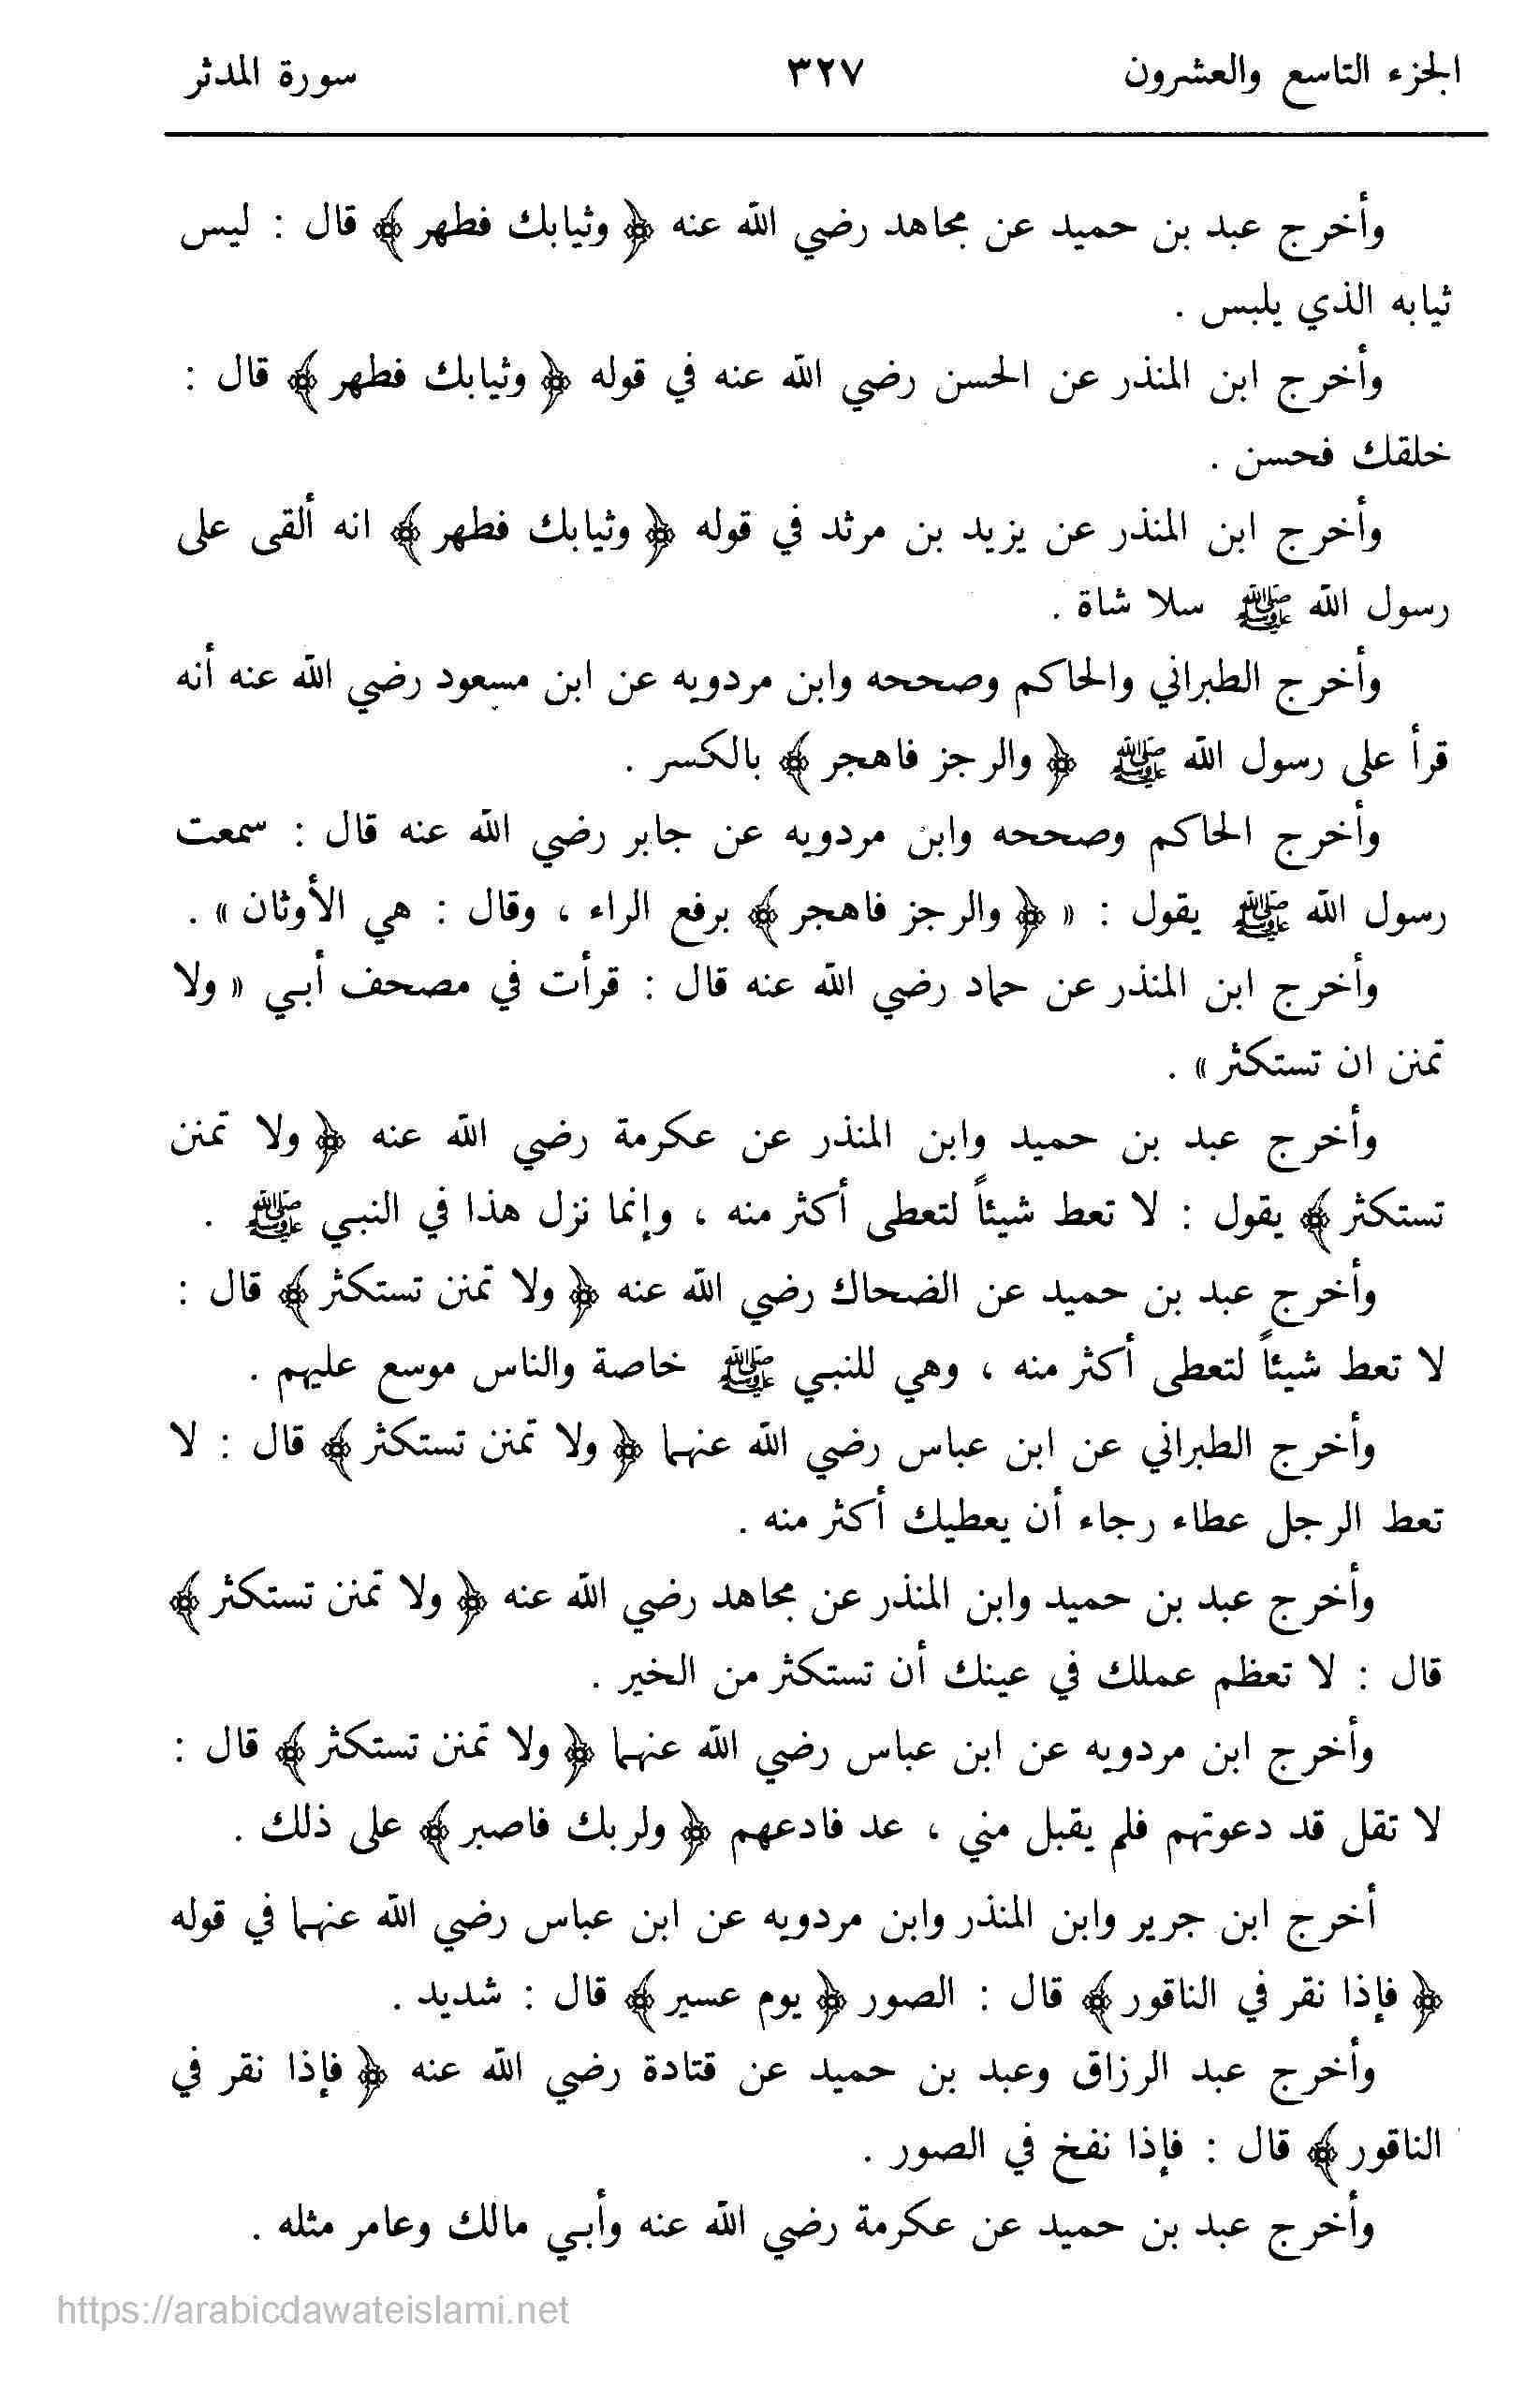 الجزء التاسع والعشرون ٣٢٧ سورة المدثر
وأخرج عبد بن حميد عن مجاهد رضي الله عنه ﴿ وثيابك فطهر ﴾ قال : ليس
ثيابه الذي يلبس .
وأخرج ابن المنذر عن الحسن رضي الله عنه في قوله ﴿ وثيابك فطهر ﴾ قال :
خلقك فحسن .
وأخرج ابن المنذر عن يزيد بن مرثد في قوله ﴿ وثيابك فطهر ﴾ انه ألقى على
رسول الله ﷺ سلا شاة .
وأخرج الطبراني والحاكم وصححه وابن مردويه عن ابن مسعود رضي الله عنه أنه
قرأ على رسول الله ﷺ ﴿ والرجز فاهجر ﴾ بالكسر .
وأخرج الحاكم وصححه وابن مردويه عن جابر رضي الله عنه قال : سمعت
رسول الله ﷺ يقول : « ﴿ والرجز فاهجر ﴾ برفع الراء ، وقال : هي الأوثان » .
وأخرج ابن المنذر عن حماد رضي الله عنه قال : قرأت في مصحف أبي « ولا
تمنن ان تستكثر » .
وأخرج عبد بن حميد وابن المنذر عن عكرمة رضي الله عنه ﴿ ولا تمنن
تستكثر ﴾ يقول : لا تعط شيئاً لتعطى أكثر منه ، وإنما نزل هذا في النبي ﷺ .
وأخرج عبد بن حميد عن الضحاك رضي الله عنه ﴿ ولا تمنن تستكثر ﴾ قال :
لا تعط شيئاً لتعطى أكثر منه ، وهي للنبي ﷺ خاصة والناس موسع عليهم .
وأخرج الطبراني عن ابن عباس رضي الله عنهما ﴿ ولا تمنن تستكثر ﴾ قال : لا
تعط الرجل عطاء رجاء أن يعطيك أكثر منه .
وأخرج عبد بن حميد وابن المنذر عن مجاهد رضي الله عنه ﴿ ولا تمنن تستكثر ﴾
قال : لا تعظم عملك في عينك أن تستكثر من الخير .
وأخرج ابن مردويه عن ابن عباس رضي الله عنهما ﴿ ولا تمنن تستكثر ﴾ قال :
لا تقل قد دعوتهم فلم يقبل مني ، عد فادعهم ﴿ ولربك فاصبر ﴾ على ذلك .
أخرج ابن جرير وابن المنذر وابن مردويه عن ابن عباس رضي الله عنهما في قوله
﴿ فإذا نقر في الناقور ﴾ قال : الصور ﴿ يوم عسير ﴾ قال : شديد .
وأخرج عبد الرزاق وعبد بن حميد عن قتادة رضي الله عنه ﴿ فإذا نقر في
الناقور ﴾ قال : فإذا نفخ في الصور .
وأخرج عبد بن حميد عن عكرمة رضي الله عنه وأبي مالك وعامر مثله .
https://arabicdawateislami.net